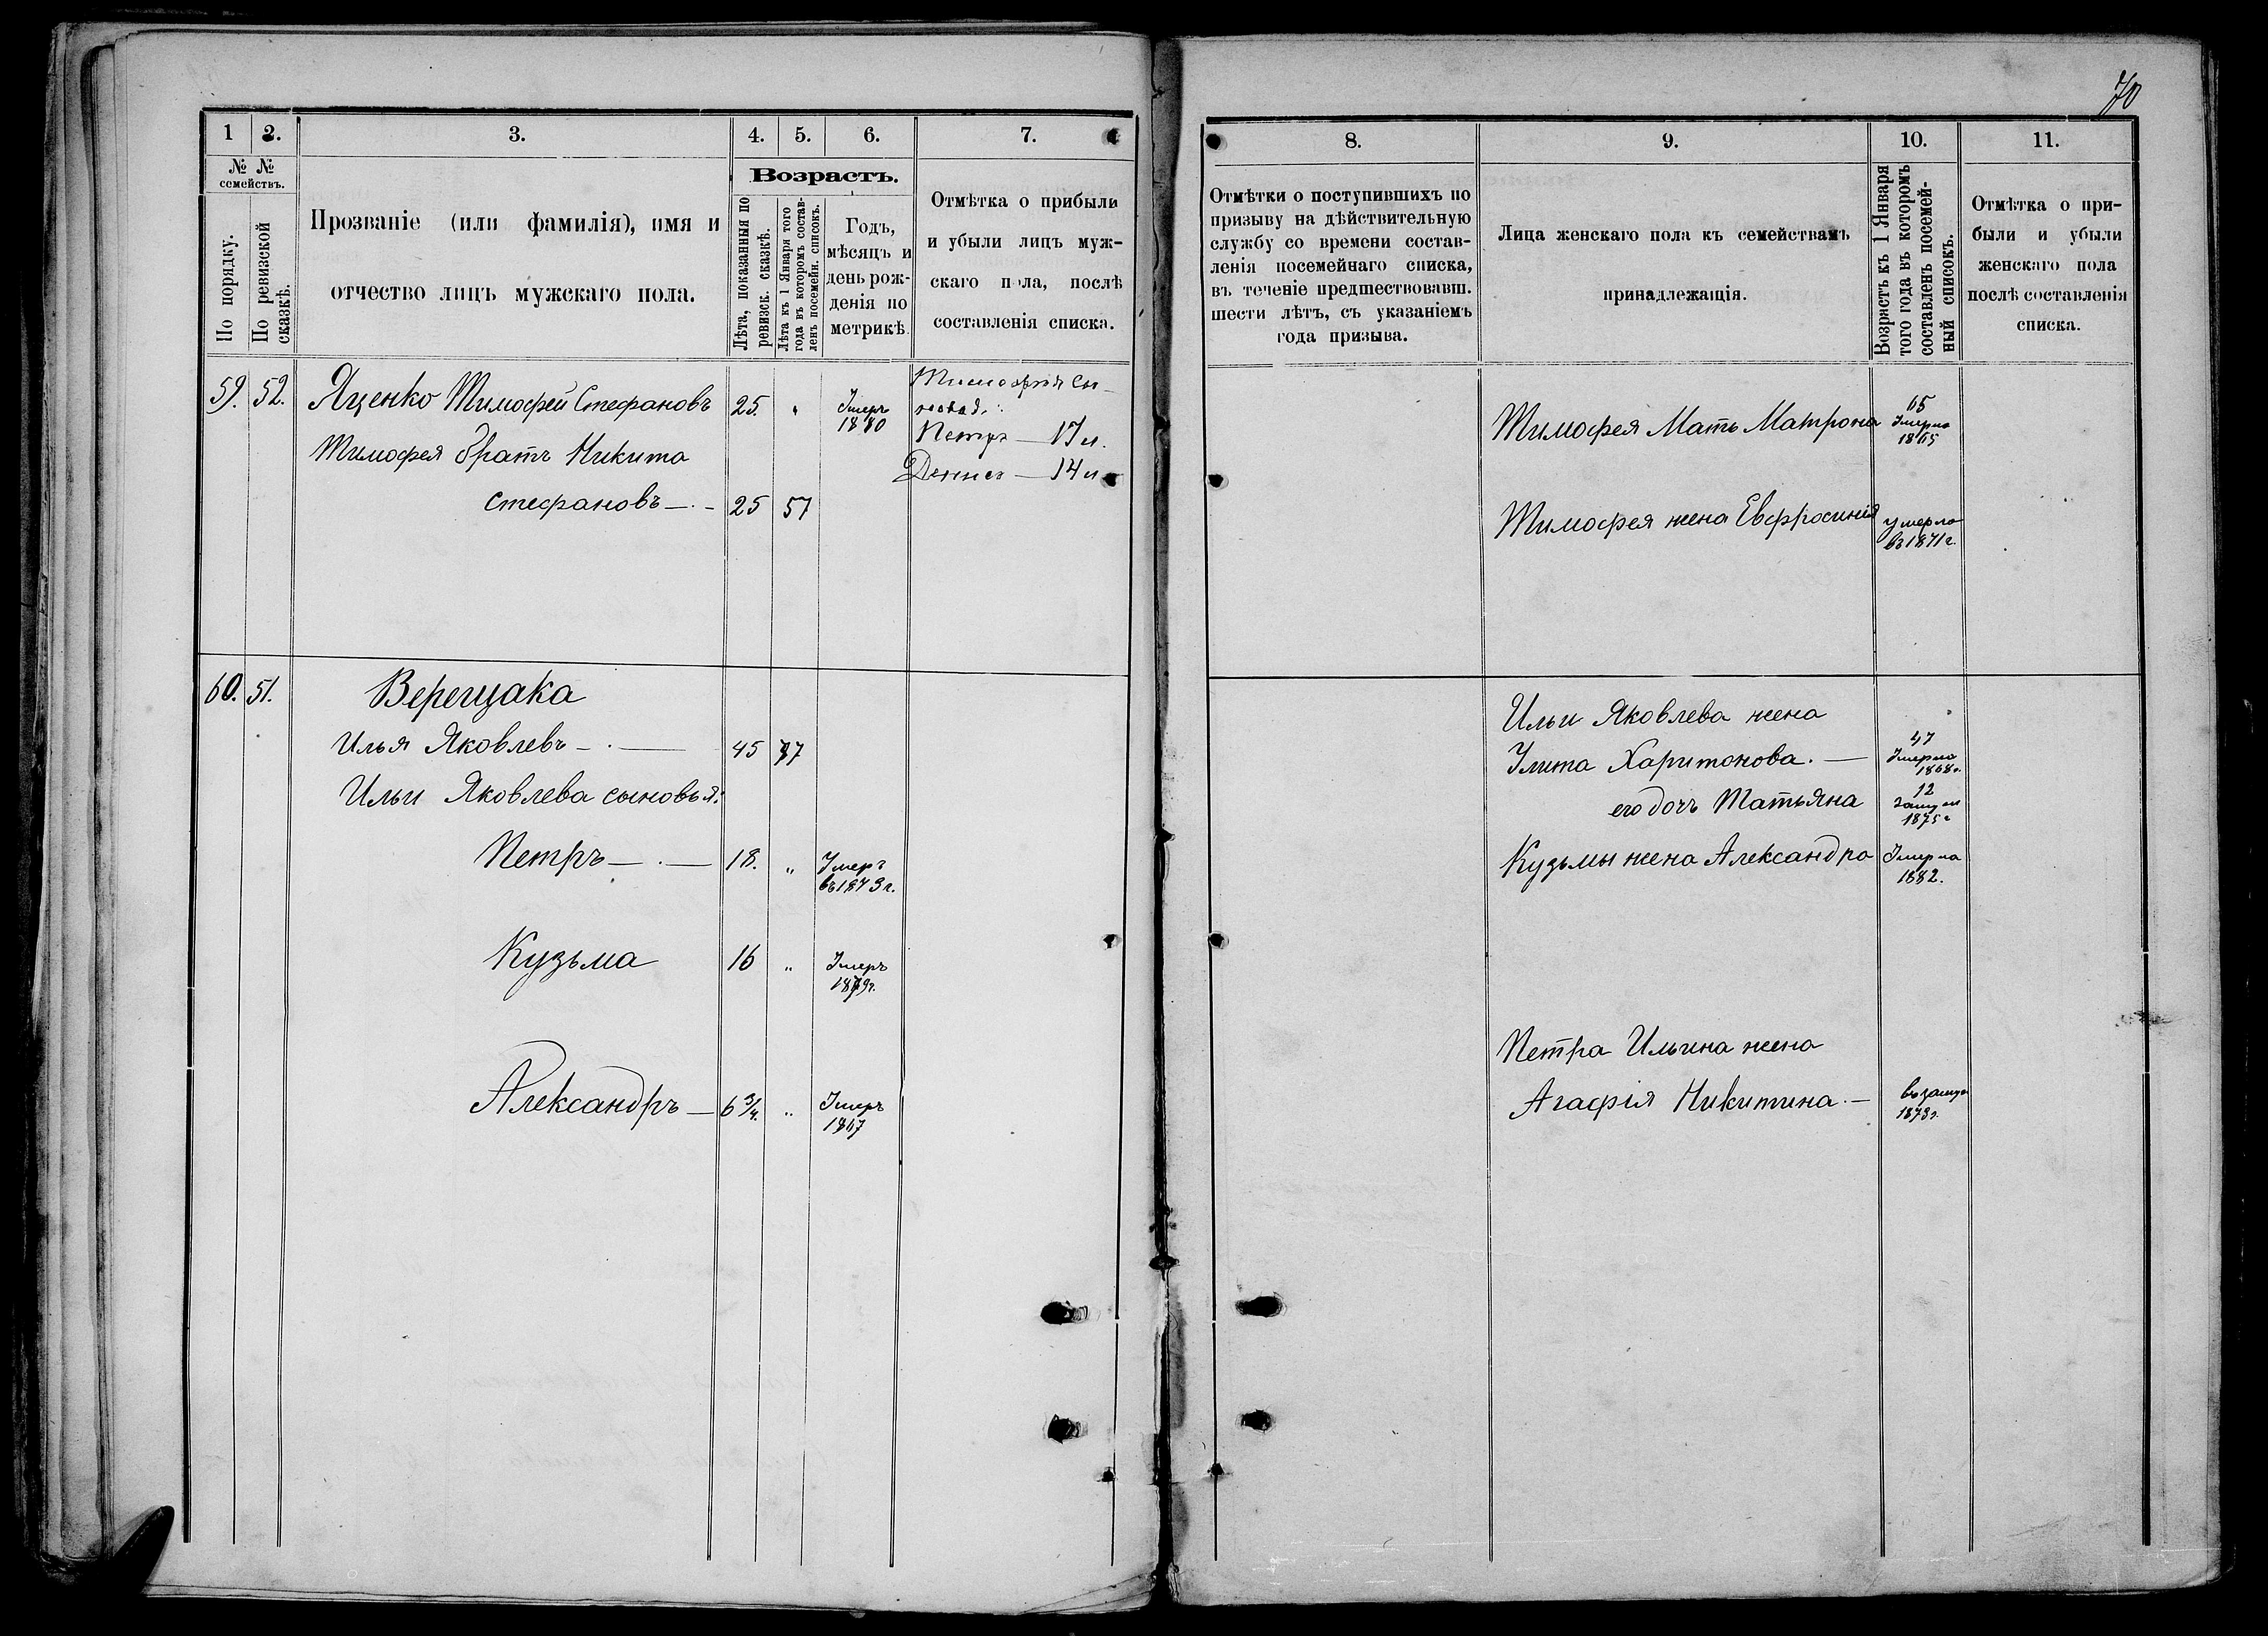 70
1 2. 3. 4. 5. 6. 7.
№ № семействъ.
По порядку.
По ревизской сказкѣ.
Прозваніе (или фамилія), имя и
отчество лицъ мужскаго пола.
Возрастъ.
Лѣта, показанныя по
ревизск. сказкѣ.
Лѣта къ 1 Января того
года въ которомъ состав-
ленъ посемейн. списокъ.
Годъ,
мѣсяцъ и
день рож-
денія по
метрикѣ
Отмѣтка о прибыли
и убыли лицъ муж-
скаго пола, послѣ
составленія списка.
59. 52. Яценко Тимофей Стефановъ 25. „ Умеръ
1880
Тимофея сы-
новья:
Петръ — 17 л.
Денисъ — 14 л.
Тимофея братъ Никита
Стефановъ — 25 57
60. 51. Верещака
Илья Яковлевъ — 45 77
Ильи Яковлева сыновья:
Петръ — 18. „ Умеръ
въ 1873 г.
Кузьма 16 „ Умеръ
1879 г.
Александръ — 6 3/4. „ Умеръ
1867
8. 9. 10. 11.
Отмѣтки о поступившихъ по
призыву на дѣйствительную
службу со времени состав-
ленія посемейнаго списка,
въ теченіе предшествовавш.
шести лѣтъ, съ указаніемъ
года призыва.
Лица женскаго пола къ семействамъ
принадлежащія.
Возрастъ къ 1 Января
того года въ которомъ
составленъ посемей-
ный списокъ.
Отмѣтка о при-
были и убыли
женскаго пола
послѣ составленія
списка.
Тимофея Мать Матрона 65
Умерла
1865
Тимофея жена Евфросинія умерла
въ 1871 г.
Ильи Яковлева жена
Улита Харитонова. — 47
Умерла
1868 г.
его дочь Татьяна 12
замуж
1875 г
Кузьмы жена Александра Умерла
1882.
Петра Ильина жена
Агафія Никитина — въ замуж
1873 г.